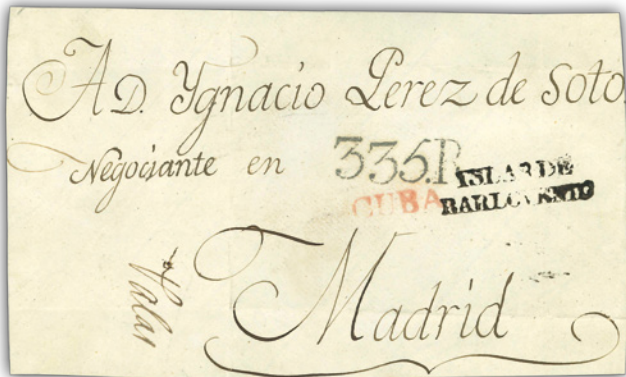 A D. Ygnacio Perez de Soto.
Negociante en
335.R
CUBA
ISLAS DE
BARLOVENTO
Madrid